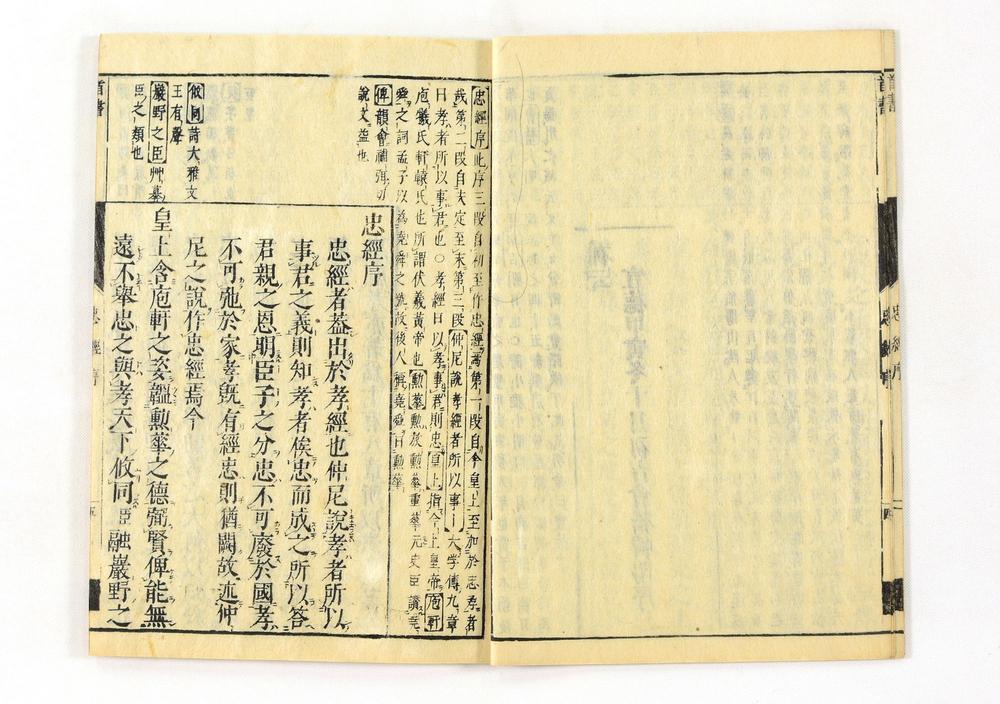 忠經序此序三段自初至作忠經焉第一段自今皇上至加於忠孝者
哉第二段自夫定至末第三段仲尼說孝經者所以事
大学傳九章
曰孝者所以事君也〇孝經曰以孝事君則忠皇上指今上皇帝庖軒
庖犧氏軒轅氏也所謂伏羲黃帝也勲華勲放勲華重華元史臣讃堯
舜之詞孟子以為堯舜之號故後人稱堯舜曰勲華
俾韻會補弭切
說文益也
忠經序
忠經者蓋出於孝經也仲尼說孝者所以
事君之義則知孝者俟忠而成之所以答
君親之恩明臣子之分忠不可廢於國孝
不可弛於家孝旣有經忠則猶闕故述仲
尼之說作忠經焉今
皇上含庖軒之姿韞勲華之德弼賢俾能無
遠不舉忠之與孝天下攸同臣融巖野之
攸同詩大雅文
王有聲
巖野之臣艸莽
臣之類也
首書
忠經序
五
首書
忠經序
四